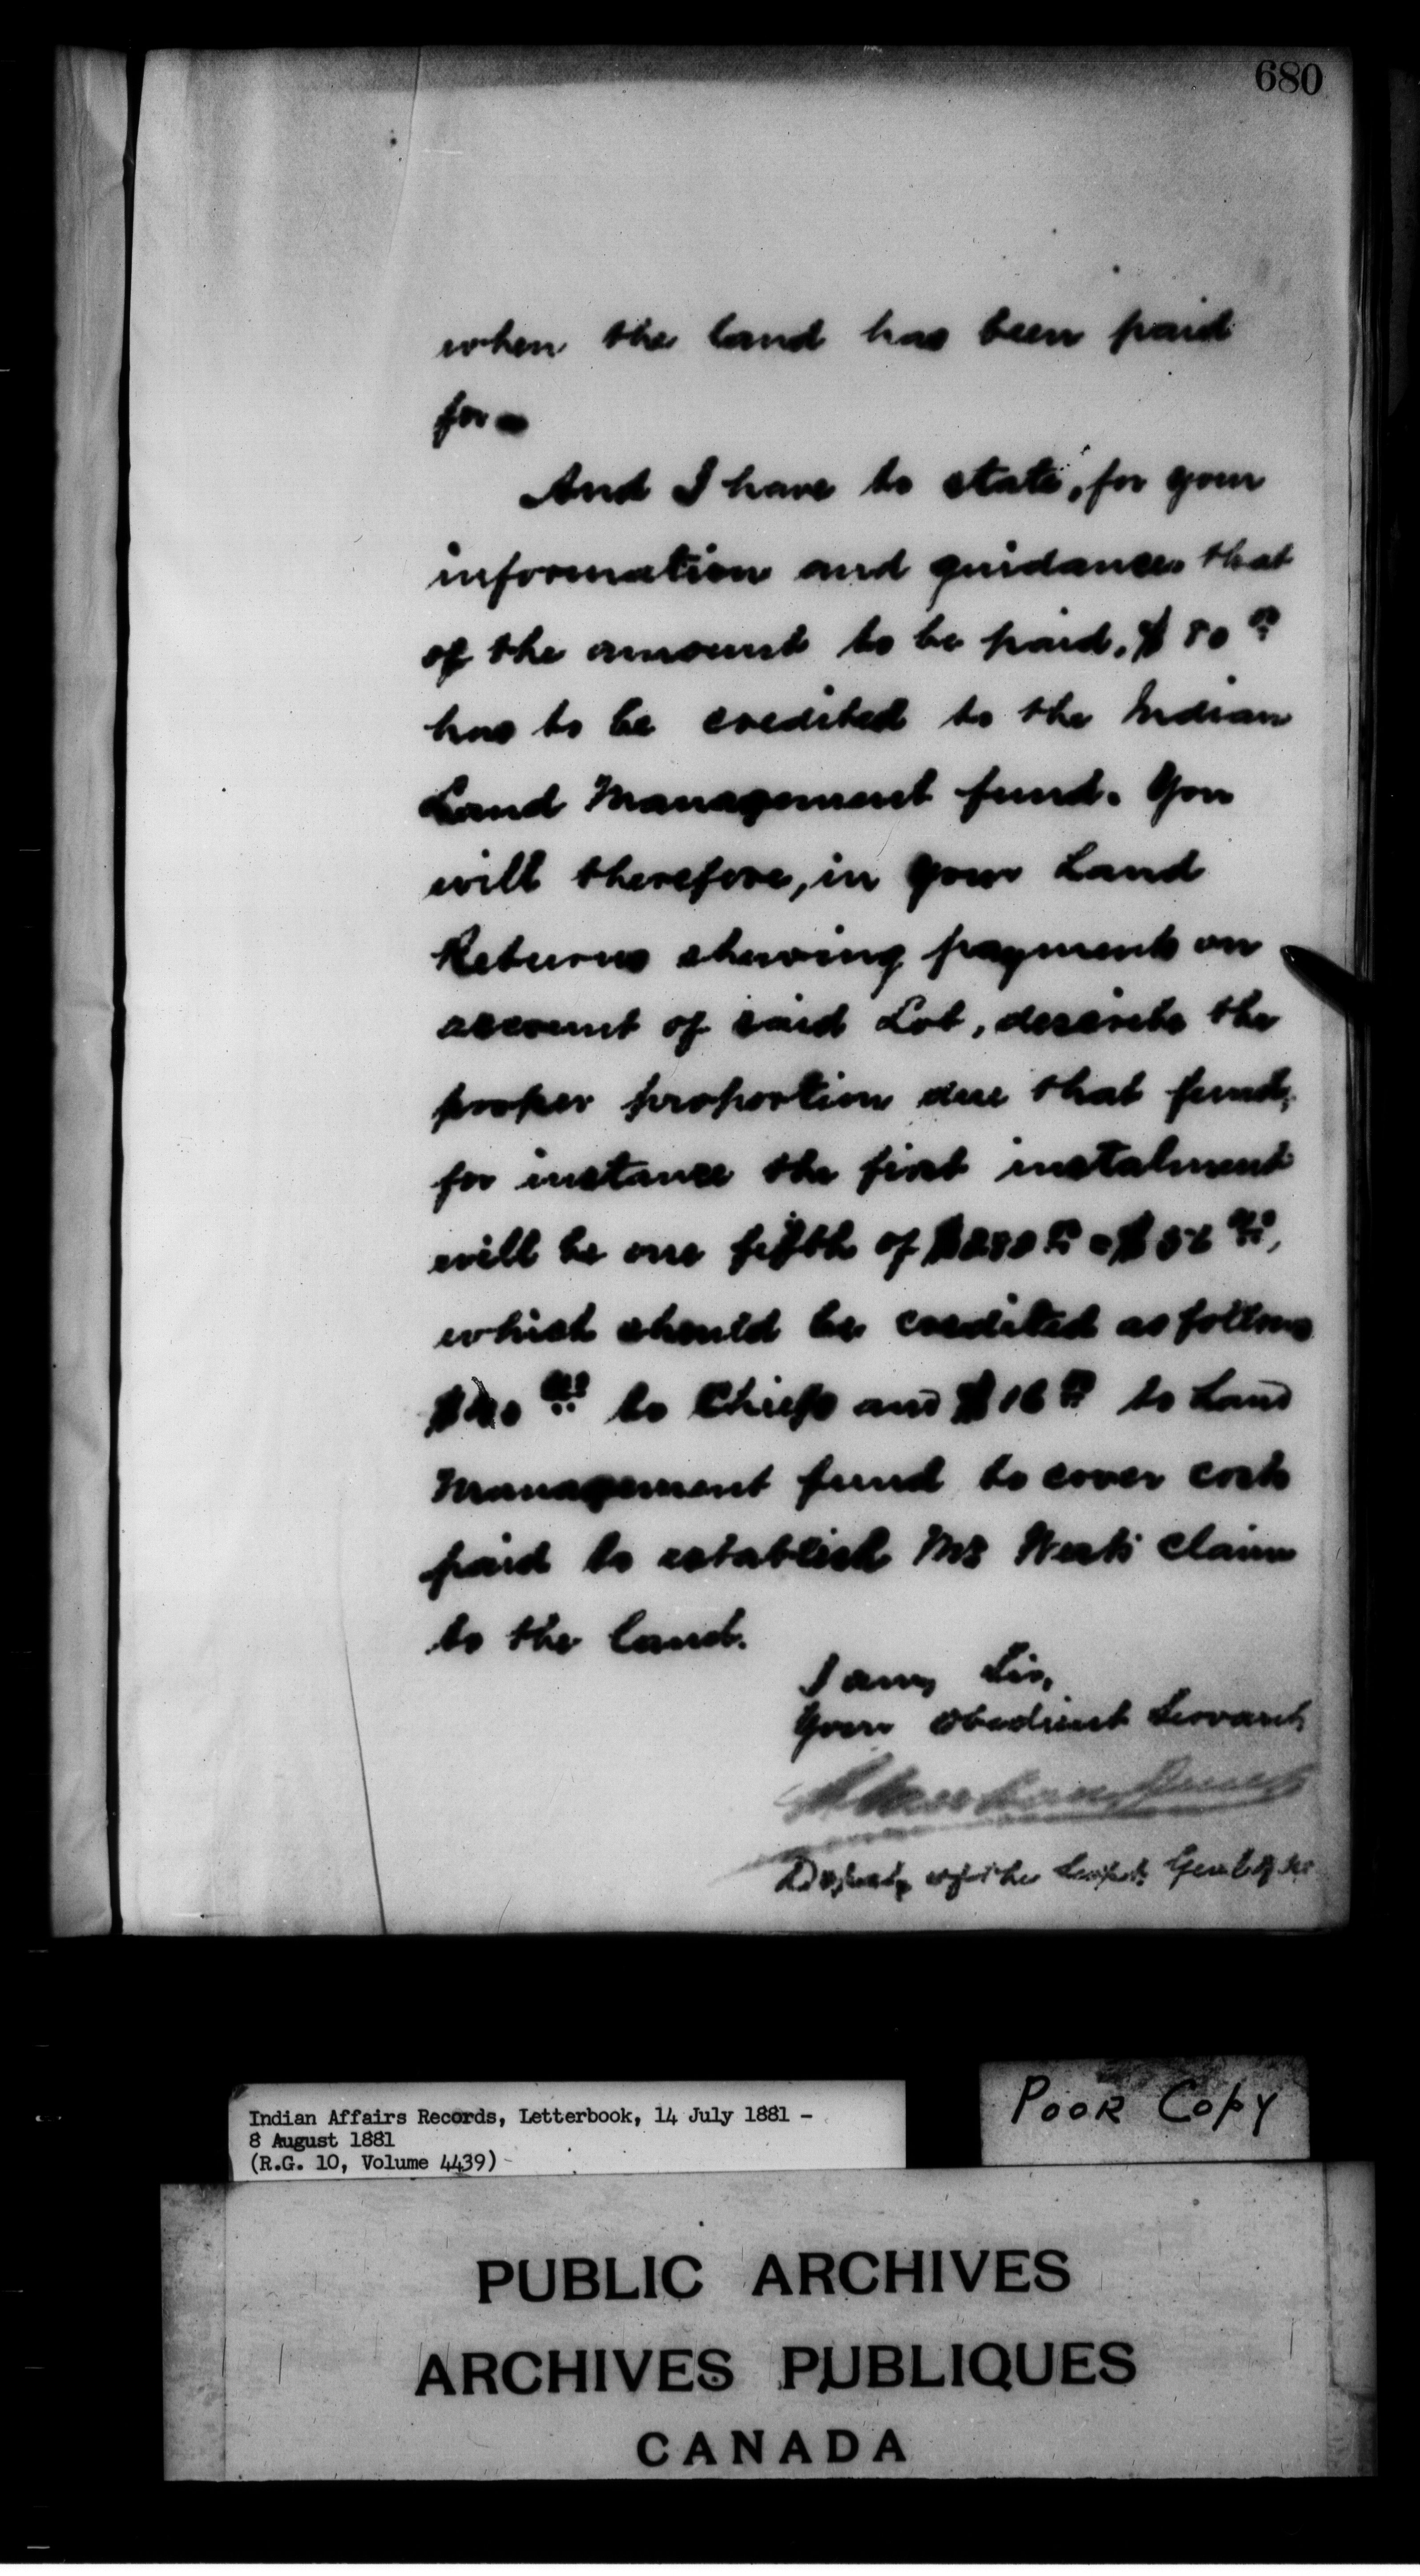 680
when the land has been paid
for
And I have to state, for your
information and guidance that
of the amount to be paid, $80
has to be credited to the Indian
Land Management fund. You
will therefore, in your Land
Returns shewing payments on
account of said Lot, describe the
proper proportion due that fund,
for instance the first instalment
will be one fifth of $280 = $56
which should be credited as follows
$40 to Chiefs and $16 to Land
Management fund to cover costs
paid to establish Mr West's claim
to the land.
I am, Sir,
Your obedient Servant,
Deputy of the Supt. Genl. of
Indian Affairs Records, Letterbook, 14 July 1881 -
8 August 1881
(R.G. 10, Volume 4439)
POOR COPY
PUBLIC ARCHIVES
ARCHIVES PUBLIQUES
CANADA